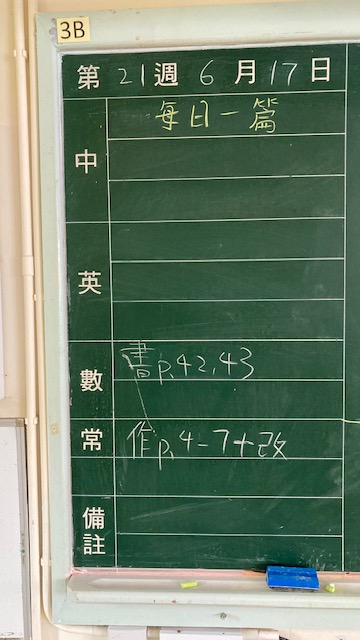 3B
第 21 週 6 月 17 日
每日一篇
中
英
數 書P.42,43
常 作P.4-7+改
備註